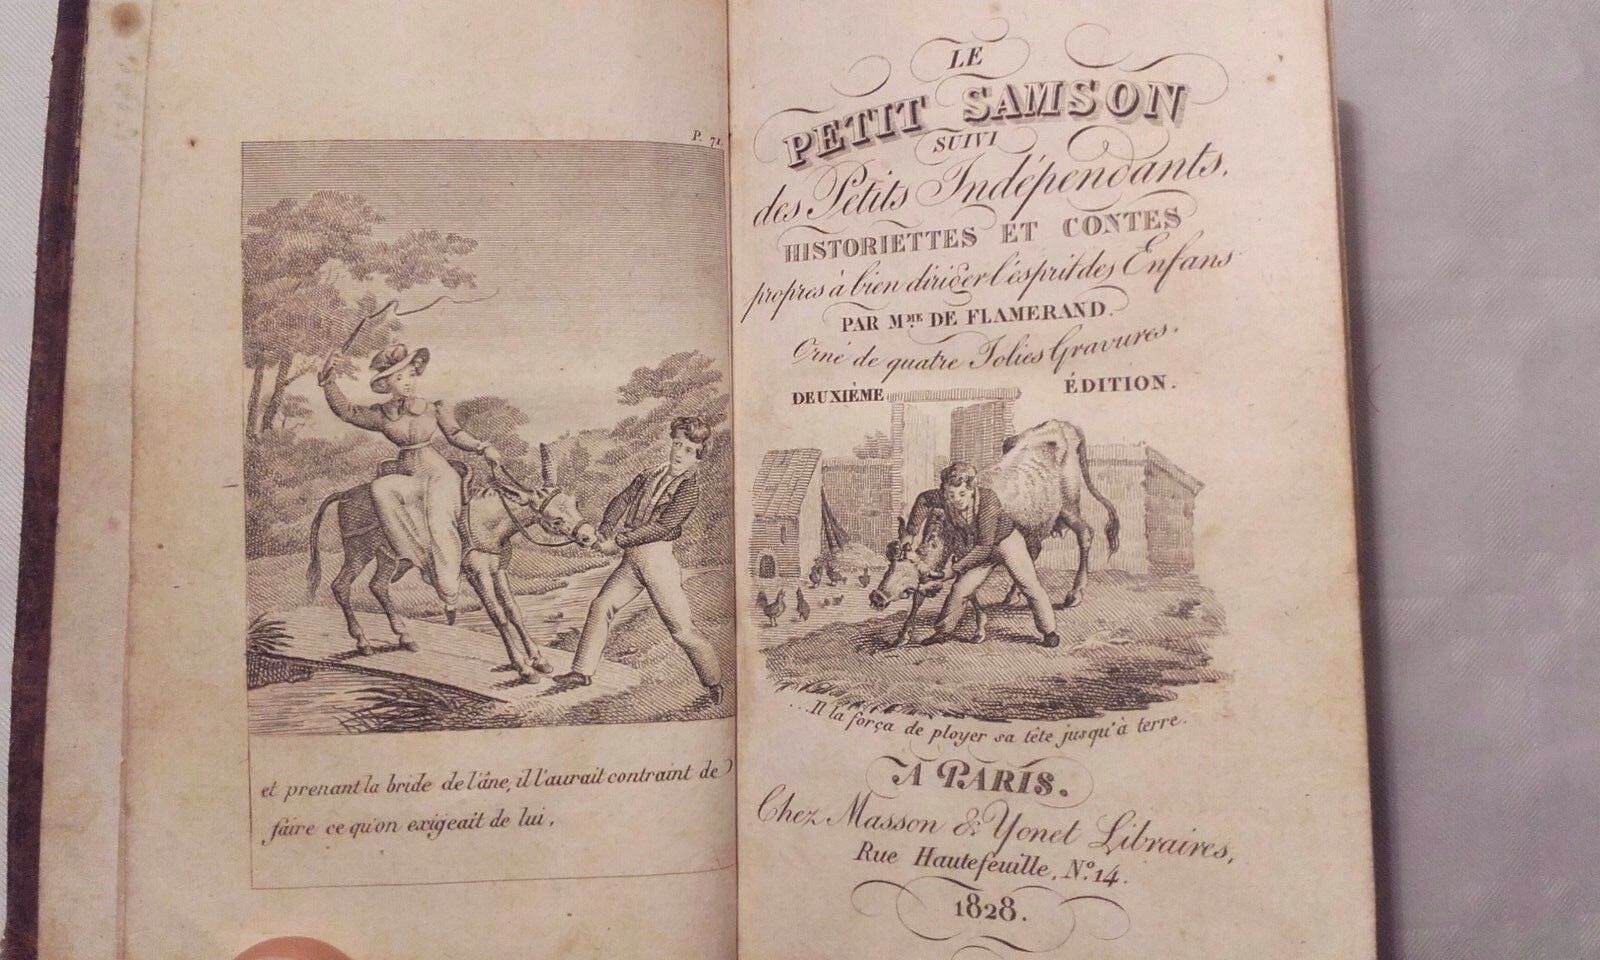 P. 71.
et prenant la bride de l'âne, il l'aurait contraint de
faire ce qu'on exigeait de lui.
LE
PETIT SAMSON
SUIVI
des Petits Indépendants,
HISTORIETTES ET CONTES
propres à bien diriger l'ésprit des Enfans
PAR MME DE FLAMERAND.
Orné de quatre Jolies Gravures.
DEUXIÈME ÉDITION.
...Il la força de ployer sa tête jusqu'à terre.
A PARIS.
Chez Masson & Yonet Libraires,
Rue Hautefeuille, No. 14.
1828.